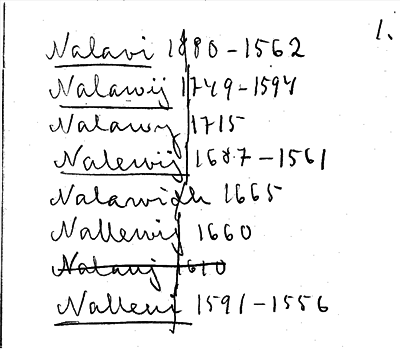 1.
Nalavi 1880-1562
Nalawij 1749-1594
Nalawy 1715
Nalewij 1687-1561
Nalawich 1665
Nallewij 1660
Nalauj 1610
Nalleni 1591-1556